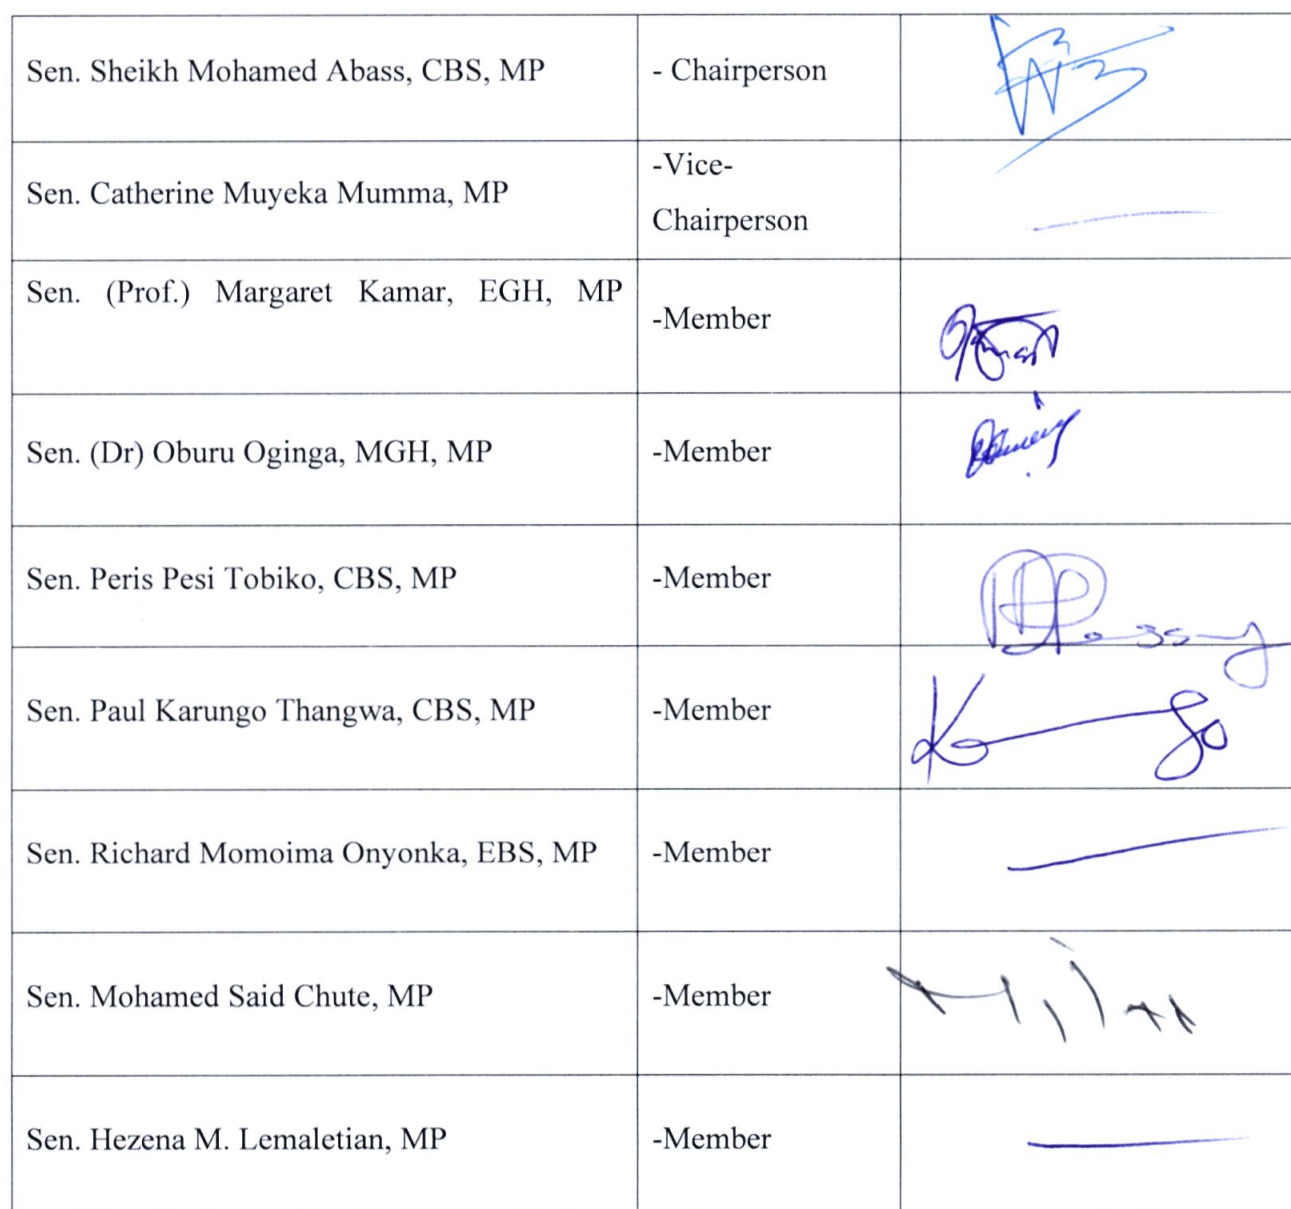 Sen. Sheikh Mohamed Abass, CBS, MP
- Chairperson
Sen. Catherine Muyeka Mumma, MP
-Vice-
Chairperson
Sen. (Prof.) Margaret Kamar, EGH, MP
-Member
Sen. (Dr) Oburu Oginga, MGH, MP
-Member
Sen. Peris Pesi Tobiko, CBS, MP
-Member
Sen. Paul Karungo Thangwa, CBS, MP
-Member
Sen. Richard Momoima Onyonka, EBS, MP
-Member
Sen. Mohamed Said Chute, MP
-Member
Sen. Hezena M. Lemaletian, MP
-Member